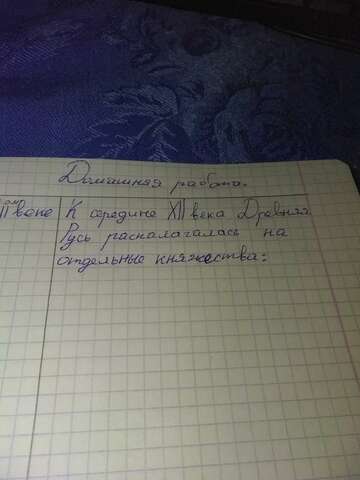 Домашняя работа.
II веке К середине XII века Древняя
Русь располагалась на
отдельные княжества: